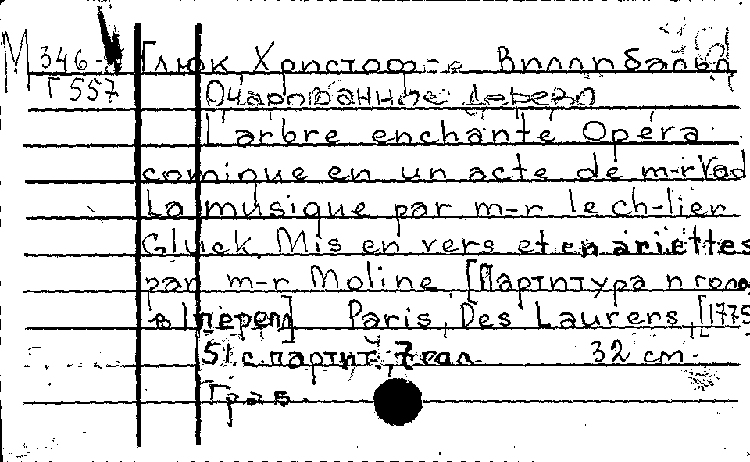 М 346-
Г 557
Глюк, Христоф Виллибальд
Очарованное дерево
L'arbre enchanté Opéra
comique en un acte de m-r Vad
La musique par m-r le ch-lier
Gluck. Mis en vers et en ariettes
par m-r Moline. [Партитура и голо
в 1 перепл] Paris, Des Laurers, [1775
51 с. партит., 7 гол. 32 см.
Грав.